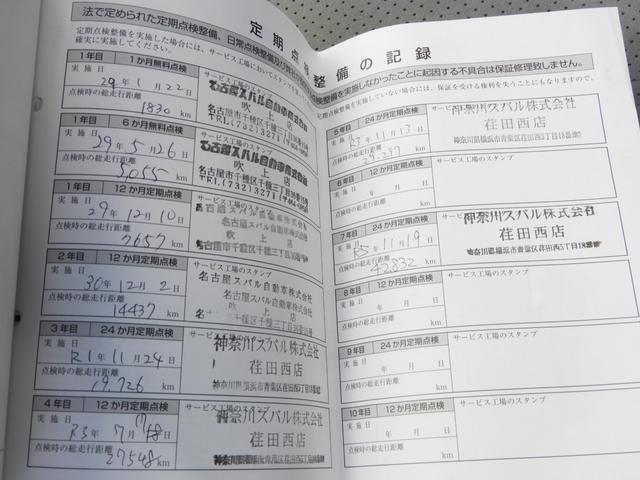 定期点検整備の記録
法で定められた定期点検整備、日常点検整備及び
点検整備を実施しなかったことに起因する不具合は保証修理致しません。
定期点検整備を実施した場合には、サービス工場において
確実に実施してください。
定期点検整備を実施していない場合には、保証を受ける権利を失うこともありますので、
1年目 1か月無料点検
実施日
29年1月22日
点検時の総走行距離
1830 km
サービス工場のスタンプ
名古屋スバル自動車株式会社
吹上店
名古屋市千種区千種三丁目
1年目 6か月無料点検
実施日
29年5月26日
点検時の総走行距離
5,055 km
サービス工場のスタンプ
名古屋スバル自動車株式会社
吹上店
名古屋市千種区千種三丁目
1年目 12か月定期点検
実施日
29年12月10日
点検時の総走行距離
7657 km
サービス工場のスタンプ
名古屋スバル自動車株式会社
吹上店
名古屋市千種区千種三丁目
2年目 12か月定期点検
実施日
30年12月2日
点検時の総走行距離
14437 km
サービス工場のスタンプ
名古屋スバル自動車株式会社
吹上店
3年目 24か月定期点検
実施日
R1年11月24日
点検時の総走行距離
19,726 km
サービス工場のスタンプ
神奈川スバル株式会社
荏田西店
神奈川県横浜市青葉区荏田西5丁目
4年目 12か月定期点検
実施日
点検時の総走行距離
27548 km
サービス工場のスタンプ
神奈川スバル株式会社
荏田西店
神奈川県横浜市青葉区荏田西5丁目
5年目 24か月定期点検
実施日
R3年11月13日
点検時の総走行距離
km
神奈川スバル株式会社
荏田西店
神奈川県横浜市青葉区荏田西5丁目
6年目 12か月定期点検
実施日
年 月 日
点検時の総走行距離
km
サービス工場のスタンプ
7年目 24か月定期点検
実施日
R5年11月19日
点検時の総走行距離
42832 km
神奈川スバル株式会社
荏田西店
神奈川県横浜市青葉区荏田西5丁目
8年目 12か月定期点検
実施日
年 月 日
点検時の総走行距離
km
サービス工場のスタンプ
9年目 24か月定期点検
実施日
年 月 日
点検時の総走行距離
km
サービス工場のスタンプ
10年目 12か月定期点検
実施日
年 月 日
点検時の総走行距離
km
サービス工場のスタンプ